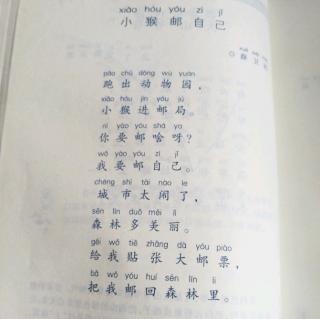 xiǎo hóu yóu zì jǐ
小猴邮自己
pǎo chū dòng wù yuán
跑出动物园，
xiǎo hóu jìn yóu jú
小猴进邮局。
nǐ yào yóu shá ya
你要邮啥呀？
wǒ yào yóu zì jǐ
我要邮自己。
chéng shì tài nào le
城市太闹了，
sēn lín duō měi lì
森林多美丽。
gěi wǒ tiē zhāng dà yóu piào
给我贴张大邮票，
bǎ wǒ yóu huí sēn lín lǐ
把我邮回森林里。